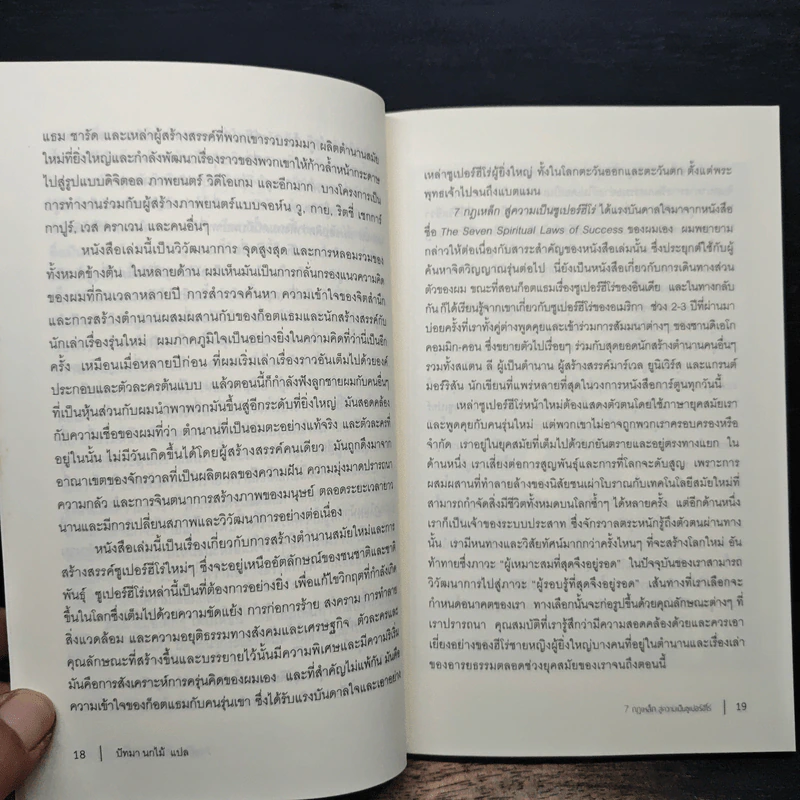 แธม ชารัด และเหล่าผู้สร้างสรรค์ที่พวกเขารวบรวมมา ผลิตตำนานสมัย
ใหม่ที่ยิ่งใหญ่และกำลังพัฒนาเรื่องราวของพวกเขาให้ก้าวล้ำหน้ากระดาษ
ไปสู่รูปแบบดิจิตอล ภาพยนตร์ วิดีโอเกม และอีกมาก บางโครงการเป็น
การทำงานร่วมกับผู้สร้างภาพยนตร์แบบจอห์น วู, กาย, ริตชี่ เชกการ์
กาปูร์, เวส คราเวน และคนอื่นๆ
หนังสือเล่มนี้เป็นวิวัฒนาการ จุดสูงสุด และการหลอมรวมของ
ทั้งหมดข้างต้น ในหลายด้าน ผมเห็นมันเป็นการกลั่นกรองแนวความคิด
ของผมที่กินเวลาหลายปี การสำรวจค้นหา ความเข้าใจของจิตสำนึก
และการสร้างตำนานผสมผสานกับของก็อตแธมและนักสร้างสรรค์กับ
นักเล่าเรื่องรุ่นใหม่ ผมภาคภูมิใจเป็นอย่างยิ่งในความคิดที่ว่านี่เป็นอีก
ครั้ง เหมือนเมื่อหลายปีก่อน ที่ผมเริ่มเล่าเรื่องราวอันเต็มไปด้วยองค์
ประกอบและตัวละครต้นแบบ แล้วตอนนี้ก็กำลังฟังลูกชายผมกับคนอื่นๆ
ที่เป็นหุ้นส่วนกับผมนำพาพวกมันขึ้นสู่อีกระดับที่ยิ่งใหญ่ มันสอดคล้อง
กับความเชื่อของผมที่ว่า ตำนานที่เป็นอมตะอย่างแท้จริง และตัวละครที่
อยู่ในนั้น ไม่มีวันเกิดขึ้นได้โดยผู้สร้างสรรค์คนเดียว มันถูกดึงมาจาก
อาณาเขตของจักรวาลที่เป็นผลิตผลของความฝัน ความมุ่งมาดปรารถนา
ความกลัว และการจินตนาการสร้างภาพของมนุษย์ ตลอดระยะเวลายาว
นานและมีการเปลี่ยนสภาพและวิวัฒนาการอย่างต่อเนื่อง
หนังสือเล่มนี้เป็นเรื่องเกี่ยวกับการสร้างตำนานสมัยใหม่และการ
สร้างสรรค์ซูเปอร์ฮีโร่ใหม่ๆ ซึ่งอยู่เหนืออัตลักษณ์ของชนชาติและชาติ
พันธุ์ ซูเปอร์ฮีโร่เหล่านี้เป็นที่ต้องการอย่างยิ่ง เพื่อแก้ไขวิกฤตที่กำลังเกิด
ขึ้นในโลกซึ่งเต็มไปด้วยความขัดแย้ง การก่อการร้าย สงคราม การทำลาย
สิ่งแวดล้อม และความอยุติธรรมทางสังคมและเศรษฐกิจ ตัวละครและ
คุณลักษณะที่สร้างขึ้นและบรรยายไว้นั้นมีความพิเศษและมีความริเริ่ม
มันคือการสังเคราะห์การครุ่นคิดของผมเอง และที่สำคัญไม่แพ้กัน มันคือ
ความเข้าใจของก็อตแธมกับคนรุ่นเขา ซึ่งได้รับแรงบันดาลใจและเอาอย่าง
18 | ปัทมา นกไม้ แปล
เหล่าซูเปอร์ฮีโร่ผู้ยิ่งใหญ่ ทั้งในโลกตะวันออกและตะวันตก ตั้งแต่พระ
พุทธเจ้าไปจนถึงแบตแมน
7 กฎเหล็ก สู่ความเป็นซูเปอร์ฮีโร่ ได้แรงบันดาลใจมาจากหนังสือ
ชื่อ The Seven Spiritual Laws of Success ของผมเอง ผมพยายาม
กล่าวให้ต่อเนื่องกับสาระสำคัญของหนังสือเล่มนั้น ซึ่งประยุกต์ใช้กับผู้
ค้นหาจิตวิญญาณรุ่นต่อไป นี่ยังเป็นหนังสือเกี่ยวกับการเดินทางส่วน
ตัวของผม ขณะที่สอนก็อตแธมเรื่องซูเปอร์ฮีโร่ของอินเดีย และในทางกลับ
กัน ก็ได้เรียนรู้จากเขาเกี่ยวกับซูเปอร์ฮีโร่ของอเมริกา ช่วง 2-3 ปีที่ผ่านมา
บ่อยครั้งที่เราทั้งคู่ต่างพูดคุยและเข้าร่วมการสัมมนาต่างๆ ของซานดิเอโก
คอมมิก-คอน ซึ่งขยายตัวไปเรื่อยๆ ร่วมกับสุดยอดนักสร้างตำนานคนอื่นๆ
รวมทั้งสแตน ลี ผู้เป็นตำนาน ผู้สร้างสรรค์มาร์เวล ยูนิเวิร์ส และแกรนต์
มอร์ริสัน นักเขียนที่แพร่หลายที่สุดในวงการหนังสือการ์ตูนทุกวันนี้
เหล่าซูเปอร์ฮีโร่หน้าใหม่ต้องแสดงตัวตนโดยใช้ภาษายุคสมัยเรา
และพูดคุยกับคนรุ่นใหม่ แต่พวกเขาไม่อาจถูกพวกเราครอบครองหรือ
จำกัด เราอยู่ในยุคสมัยที่เต็มไปด้วยภยันตรายและอยู่ตรงทางแยก ใน
ด้านหนึ่ง เราเสี่ยงต่อการสูญพันธุ์และการที่โลกจะดับสูญ เพราะการ
ผสมผสานที่ทำลายล้างของนิสัยชนเผ่าโบราณกับเทคโนโลยีสมัยใหม่ที่
สามารถกำจัดสิ่งมีชีวิตทั้งหมดบนโลกซ้ำๆ ได้หลายครั้ง แต่อีกด้านหนึ่ง
เราก็เป็นเจ้าของระบบประสาท ซึ่งจักรวาลตระหนักรู้ถึงตัวตนผ่านทาง
นั้น เรามีหนทางและวิสัยทัศน์มากกว่าครั้งไหนๆ ที่จะสร้างโลกใหม่ อัน
ท้าทายซึ่งภาวะ “ผู้เหมาะสมที่สุดจึงอยู่รอด” ในปัจจุบันของเราสามารถ
วิวัฒนาการไปสู่ภาวะ “ผู้รอบรู้ที่สุดจึงอยู่รอด” เส้นทางที่เราเลือกจะ
กำหนดอนาคตของเรา ทางเลือกนั้นจะก่อรูปขึ้นด้วยคุณลักษณะต่างๆ ที่
เราปรารถนา คุณสมบัติที่เรารู้สึกว่ามีความสอดคล้องด้วยและควรเอา
เยี่ยงอย่างของฮีโร่ชายหญิงผู้ยิ่งใหญ่บางคนที่อยู่ในตำนานและเรื่องเล่า
ของอารยธรรมตลอดช่วงยุคสมัยของเราจนถึงตอนนี้
7 กฎเหล็ก สู่ความเป็นซูเปอร์ฮีโร่ | 19